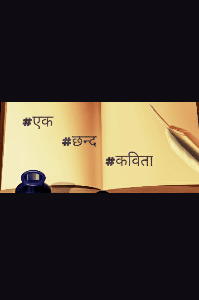 #एक
#छन्द
#कविता